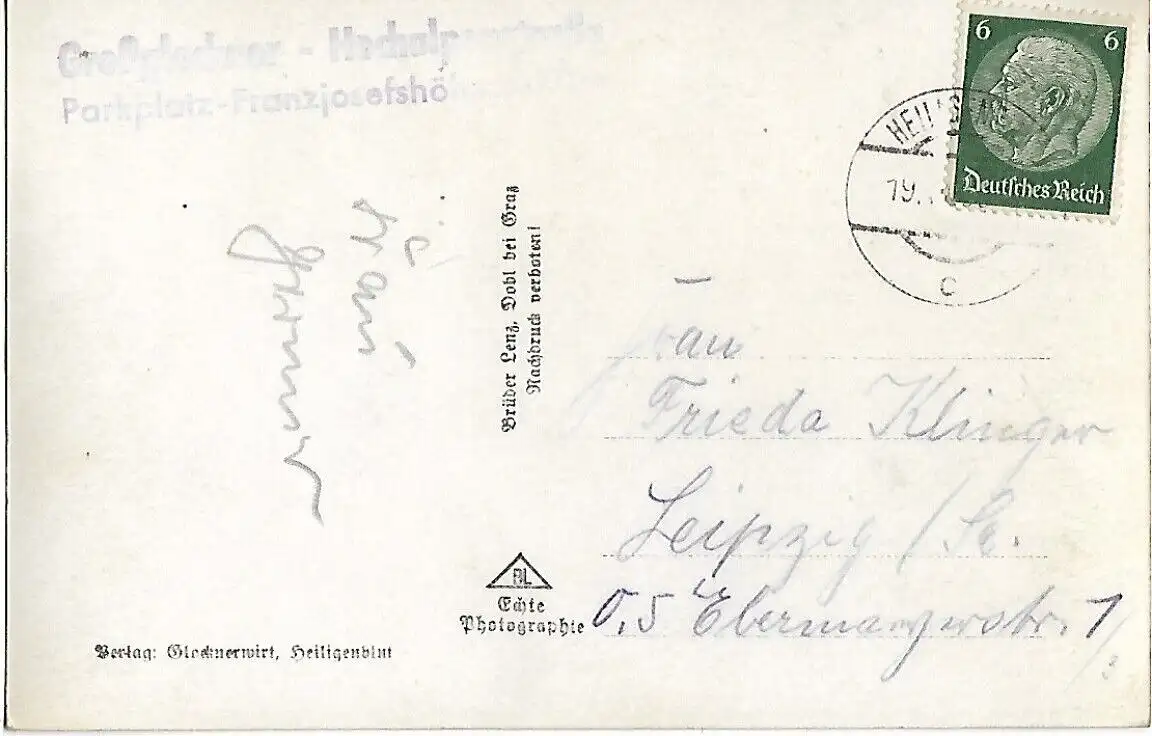 Großglockner - Hochalpenstraße
Parkplatz-Franzjosefshöhe
6 6
Deutsches Reich
19.
c
Brüder Lenz, Dobl bei Graz
Nachdruck verboten!
Frau
Frieda Klinger
Leipzig / Sa.
O, 5
BL
Echte
Photographie
Verlag: Glocknerwirt, Heiligenblut